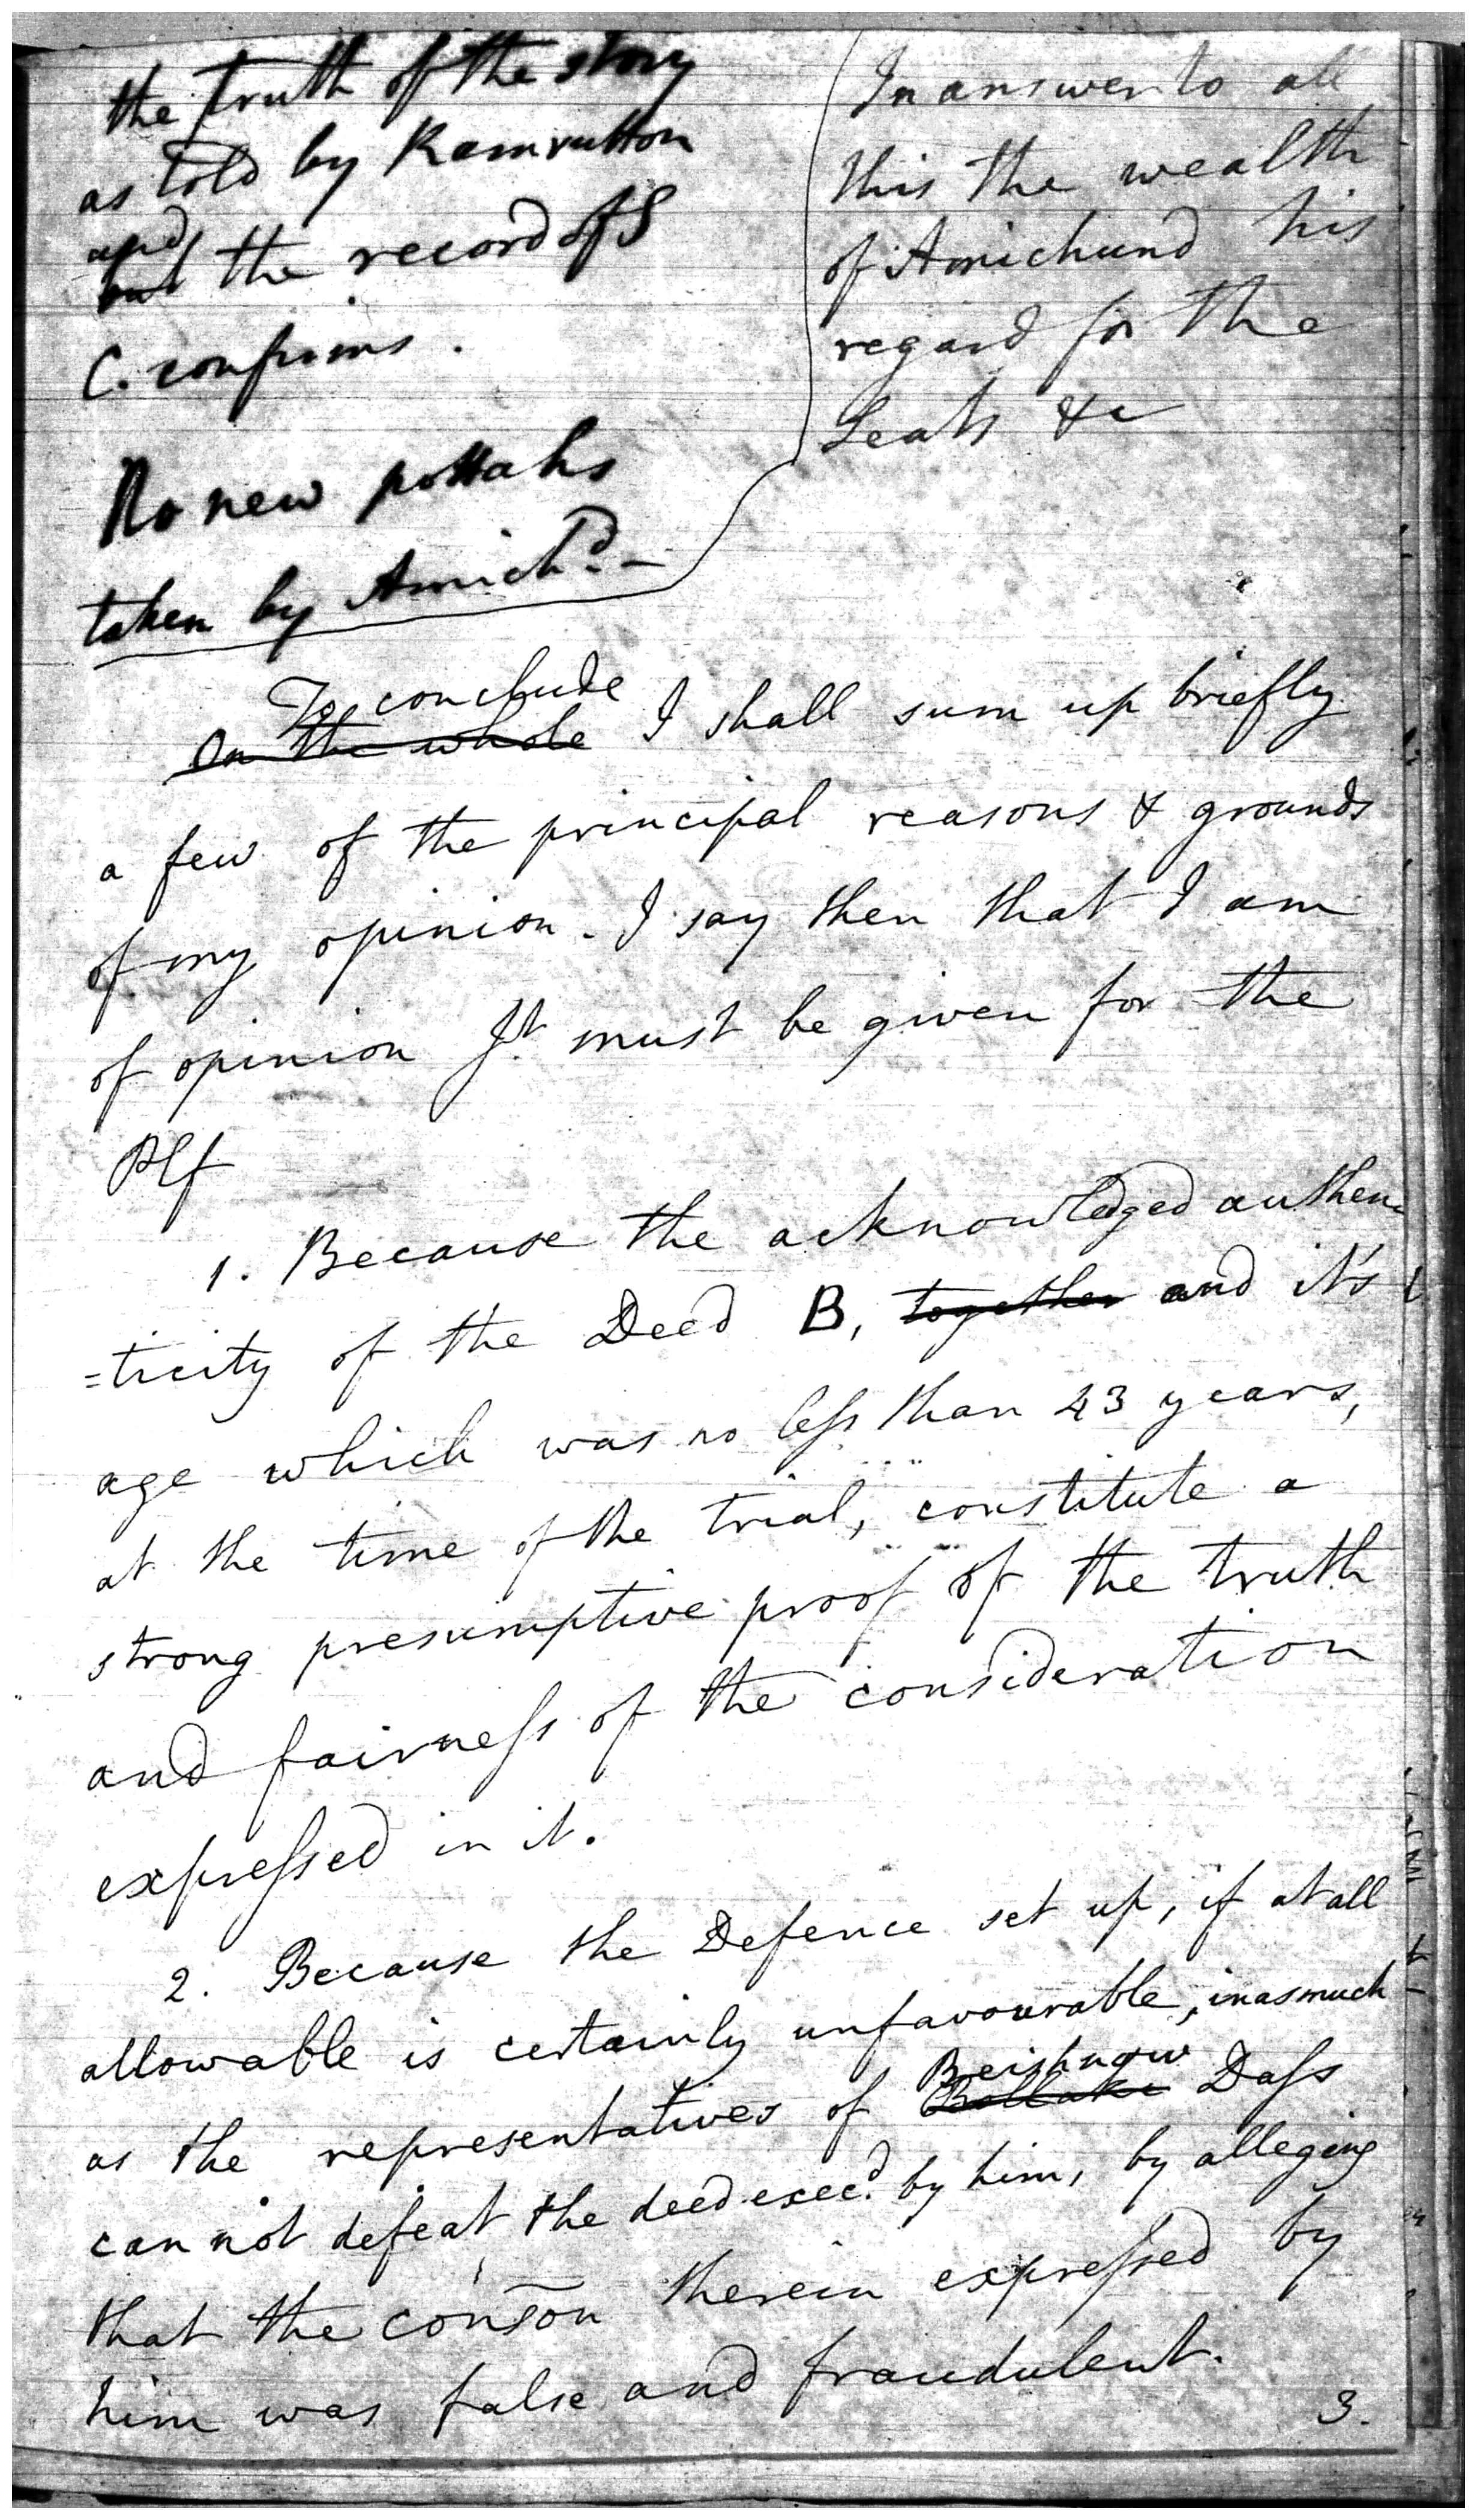 the truth of the story
as told by Ramrutton
and
but the record of S
C. confirms.
No new pottahs
taken by Amich.d -
In answer to all
this the wealth
of Amichund his
regard for the
Seats &c
To conclude
On the whole I shall sum up briefly
a few of the principal reasons & grounds
of my opinion. I say then that I am
of opinion Jt. must be given for the
Plf
1. Because the acknowledged authen=
=ticity of the Deed B, together and it's
age which was no less than 43 years,
at the time of the trial, constitute a
strong presumptive proof of the truth
and fairness of the consideration
expressed in it.
2. Because the Defence set up, if at all
allowable is certainly unfavourable, inasmuch
Beishnow
as the representatives of Bollakee Dass
can not defeat the deed exec.d by him, by alleging
that the conson therein expressed by
him was false and fraudulent.
3.